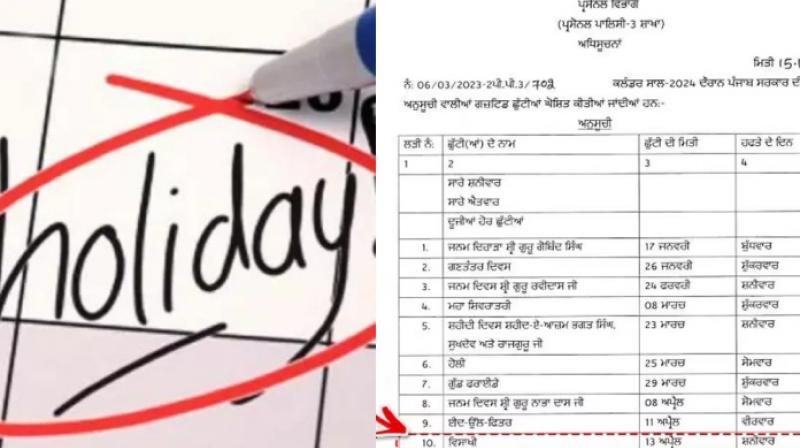 holiday
ਪ੍ਰਸੋਨਲ ਵਿਭਾਗ
(ਪ੍ਰਸੋਨਲ ਪਾਲਿਸੀ-3 ਸ਼ਾਖਾ)
ਅਧਿਸੂਚਨਾਂ
ਮਿਤੀ 15.
ਨੰ: 06/03/2023-2ਪੀ.ਪੀ.3/702 ਕਲੰਡਰ ਸਾਲ-2024 ਦੌਰਾਨ ਪੰਜਾਬ ਸਰਕਾਰ ਦੀ
ਅਨੁਸੂਚੀ ਵਾਲੀਆਂ ਗਜ਼ਟਿਡ ਛੁੱਟੀਆਂ ਘੋਸ਼ਿਤ ਕੀਤੀਆਂ ਜਾਂਦੀਆਂ ਹਨ:-
ਅਨੁਸੂਚੀ
ਲੜੀ ਨੰ: ਛੁੱਟੀ(ਆਂ) ਦੇ ਨਾਮ ਛੁੱਟੀ ਦੀ ਮਿਤੀ ਹਫਤੇ ਦੇ ਦਿਨ
1 2 3 4
ਸਾਰੇ ਸ਼ਨੀਵਾਰ
ਸਾਰੇ ਐਤਵਾਰ
ਦੂਜੀਆਂ ਹੋਰ ਛੁੱਟੀਆਂ
1. ਜਨਮ ਦਿਹਾੜਾ ਸ੍ਰੀ ਗੁਰੂ ਗੋਬਿੰਦ ਸਿੰਘ 17 ਜਨਵਰੀ ਬੁੱਧਵਾਰ
2. ਗਣਤੰਤਰ ਦਿਵਸ 26 ਜਨਵਰੀ ਸ਼ੁੱਕਰਵਾਰ
3. ਜਨਮ ਦਿਵਸ ਸ਼੍ਰੀ ਗੁਰੂ ਰਵੀਦਾਸ ਜੀ 24 ਫਰਵਰੀ ਸ਼ਨੀਵਾਰ
4. ਮਹਾ ਸ਼ਿਵਰਾਤਰੀ 08 ਮਾਰਚ ਸ਼ੁੱਕਰਵਾਰ
5. ਸ਼ਹੀਦੀ ਦਿਵਸ ਸ਼ਹੀਦ-ਏ-ਆਜ਼ਮ ਭਗਤ ਸਿੰਘ, 23 ਮਾਰਚ ਸ਼ਨੀਵਾਰ
ਸੁਖਦੇਵ ਅਤੇ ਰਾਜਗੁਰੂ ਜੀ
6. ਹੋਲੀ 25 ਮਾਰਚ ਸੋਮਵਾਰ
7. ਗੁੱਡ ਫਰਾਈਡੇ 29 ਮਾਰਚ ਸ਼ੁੱਕਰਵਾਰ
8. ਜਨਮ ਦਿਵਸ ਸ਼੍ਰੀ ਗੁਰੂ ਨਾਭਾ ਦਾਸ ਜੀ 08 ਅਪ੍ਰੈਲ ਸੋਮਵਾਰ
9. ਈਦ-ਉੱਲ-ਫਿਤਰ 11 ਅਪ੍ਰੈਲ ਵੀਰਵਾਰ
10. ਵਿਸਾਖੀ 13 ਅਪ੍ਰੈਲ ਸ਼ਨੀਵਾਰ